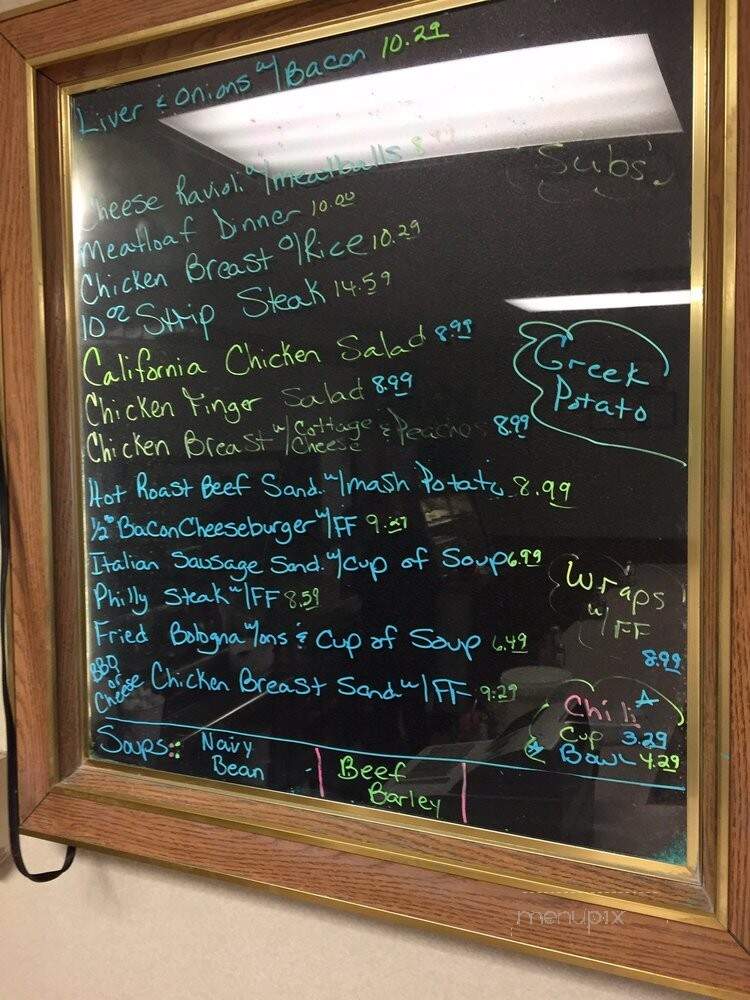 Liver & Onions w/Bacon 10.29
Subs
Cheese Ravioli w/meatballs
Meatloaf Dinner 10.00
Chicken Breast o/Rice 10.29
10oz Strip Steak 14.59
California Chicken Salad 8.99
Greek
Potato
Chicken Finger Salad 8.99
Chicken Breast w/Cottage Cheese & Peaches 8.99
Hot Roast Beef Sand. w/mash Potato 8.99
½# Bacon Cheeseburger w/FF
Italian Sausage Sand. w/Cup of Soup 6.99
Wraps
w/FF
8.99
Philly Steak w/FF 8.59
Fried Bologna w/ons & Cup of Soup 6.49
BBQ or Cheese Chicken Breast Sand w/FF 9.29
Chili
Cup 3.29
Bowl 4.29
Soups: Navy
Bean
Beef
Barley
menupix